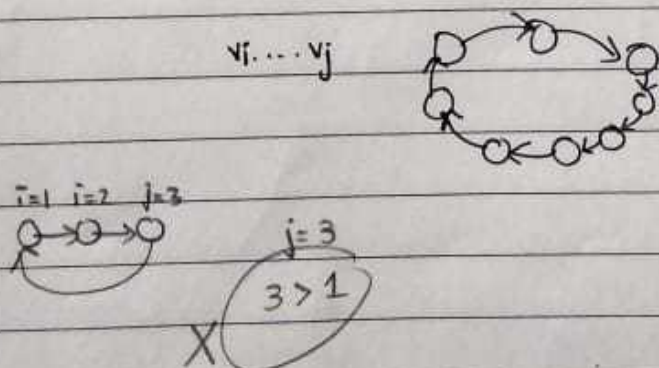 vi....vj
i=1 i=2 j=3
j=3
3 > 1
X